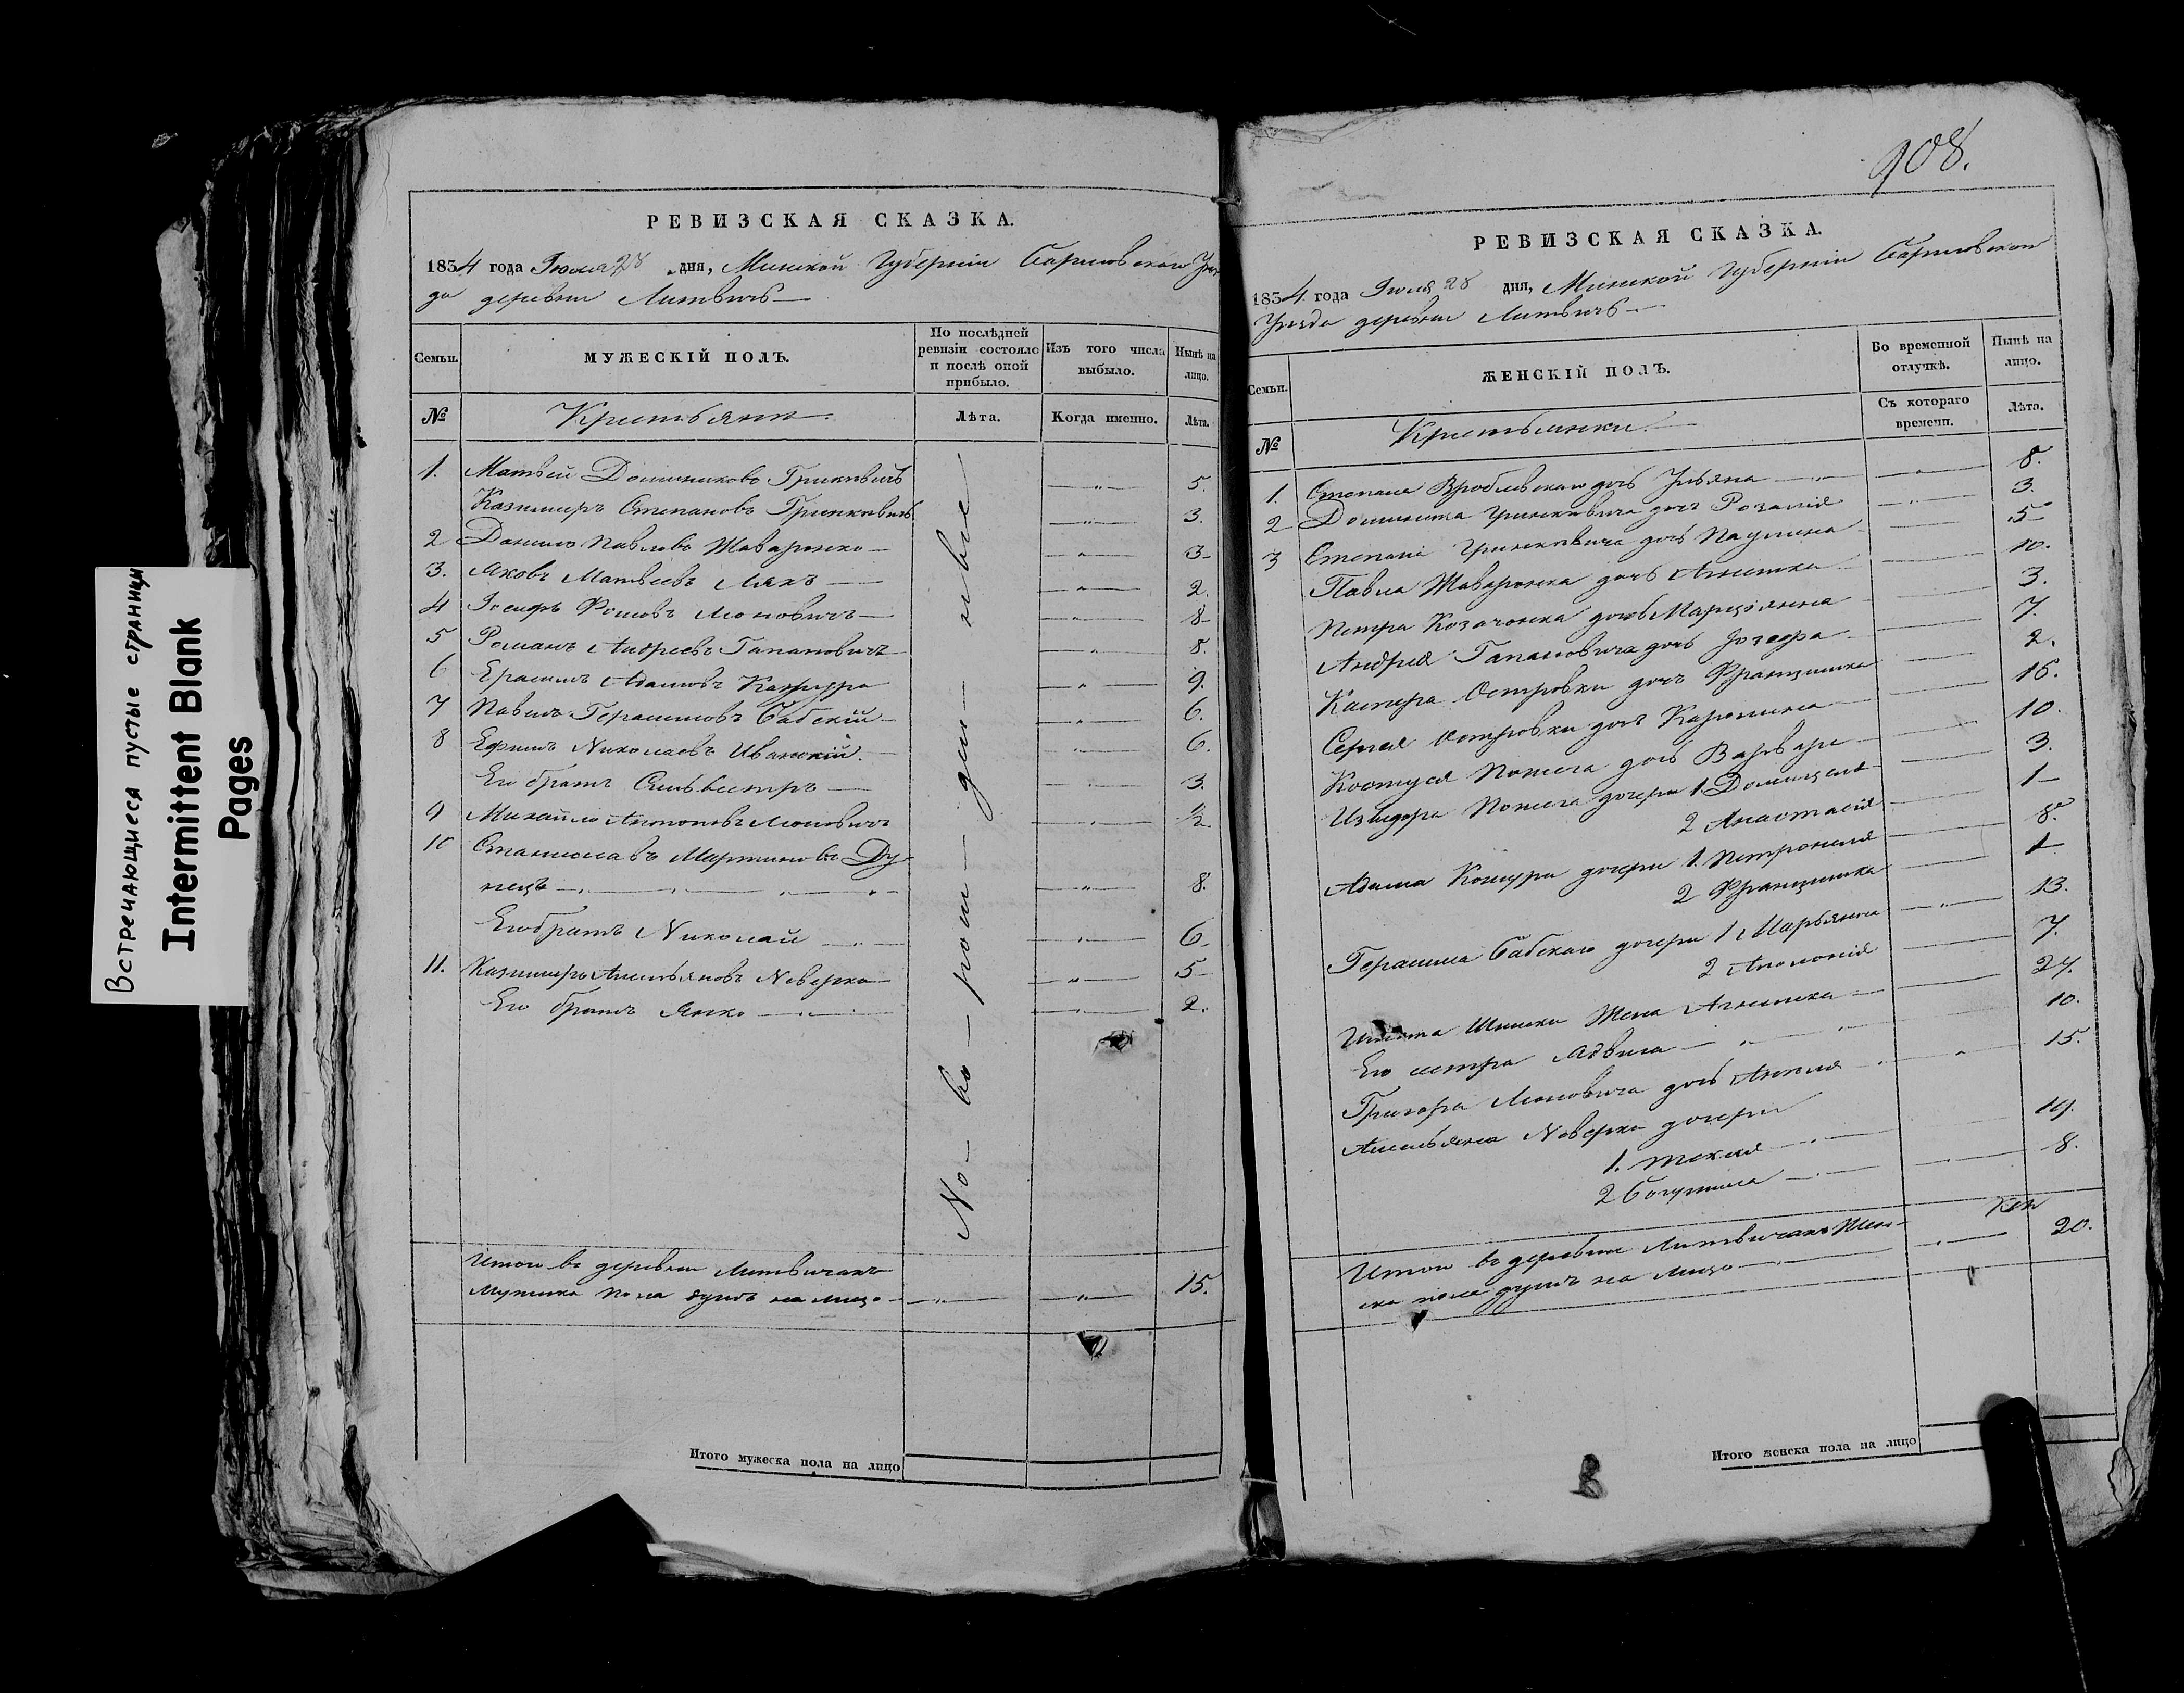 Встречающиеся пустые страницы
Intermittent Blank
Pages
РЕВИЗСКАЯ СКАЗКА.
1834 года Июля 28 дня, Минской Губернии Борисовскаго Уез-
да деревни Литвичъ
Семьи.
МУЖЕСКІЙ ПОЛЪ.
По послѣдней
ревизіи состояло
и послѣ оной
прибыло.
Изъ того числа
выбыло.
Нынѣ на
лицо.
№
Крестьяне
Лѣта.
Когда именно.
Лѣта.
Но - во - рож - ден - ные
1. Матвей Доминиковъ Гринкевичъ 5.
Казимиръ Степановъ Гринкевичъ 3.
2 Данило Павловъ Жавронко 3
3. Яковъ Матвеевъ Ляхъ 2.
4 Іосифъ Леоновичъ 8
5 Романъ Андреевъ Гапановичъ 8.
6 Адамовъ 9.
7 Павелъ Герасимовъ Бабскій 6.
8 Ефимъ Николаевъ 6.
Его братъ Сильвестръ 3.
9 Михайло Антоновъ Леоновичъ ½.
10 Станиславъ Мартиновъ Ду-
нецъ 8.
Его братъ Николай 6
11. Казимиръ Емельяновъ Неверко 5
Его братъ Янко 2.
Итого въ деревни Литвичахъ
Мужеска пола душъ на лицо 15.
Итого мужеска пола на лицо
908.
РЕВИЗСКАЯ СКАЗКА.
1834 года Июля 28 дня, Минской Губернии Борисовскаго
Уезда деревни Литвичъ
Семьи.
ЖЕНСКІЙ ПОЛЪ.
Во временной
отлучкѣ.
Нынѣ на
лицо.
№
Крестьянки
Съ котораго
времени.
Лѣта.
1. Степана Вроблевскаго дочь Ульяна 8.
2 Доминика Гринкевича дочь Розалія 3.
3 Степана Гринкевича дочь Паулина 5
Павла Жавронка дочь Агнешка 10.
Петра Козачонка дочь Марціянна 3.
Андрея Гапановича дочь Іозефа 7.
Каспера Островки дочь Францишка 2.
Сергея Островки дочь Каролина 15.
дочь Варвара 10.
Изидора дочери 1 Домицеля 3.
2 Анастасія 1
Адама дочери 1. Петронеля 8.
2 Францишка 1
Герасима Бабскаго дочери 1 Марьянна 13.
2 Аполонія 7.
Жена Агнешка 24.
Его сестра Ядвига 10.
Григора Леоновича дочь Анеля 15.
Емельяна Неверко дочери
1. Текля 19.
2 Богумила 8.
Итого въ деревни Литвичахъ Жен-
ска пола душъ на лицо 20.
Итого женска пола на лицо